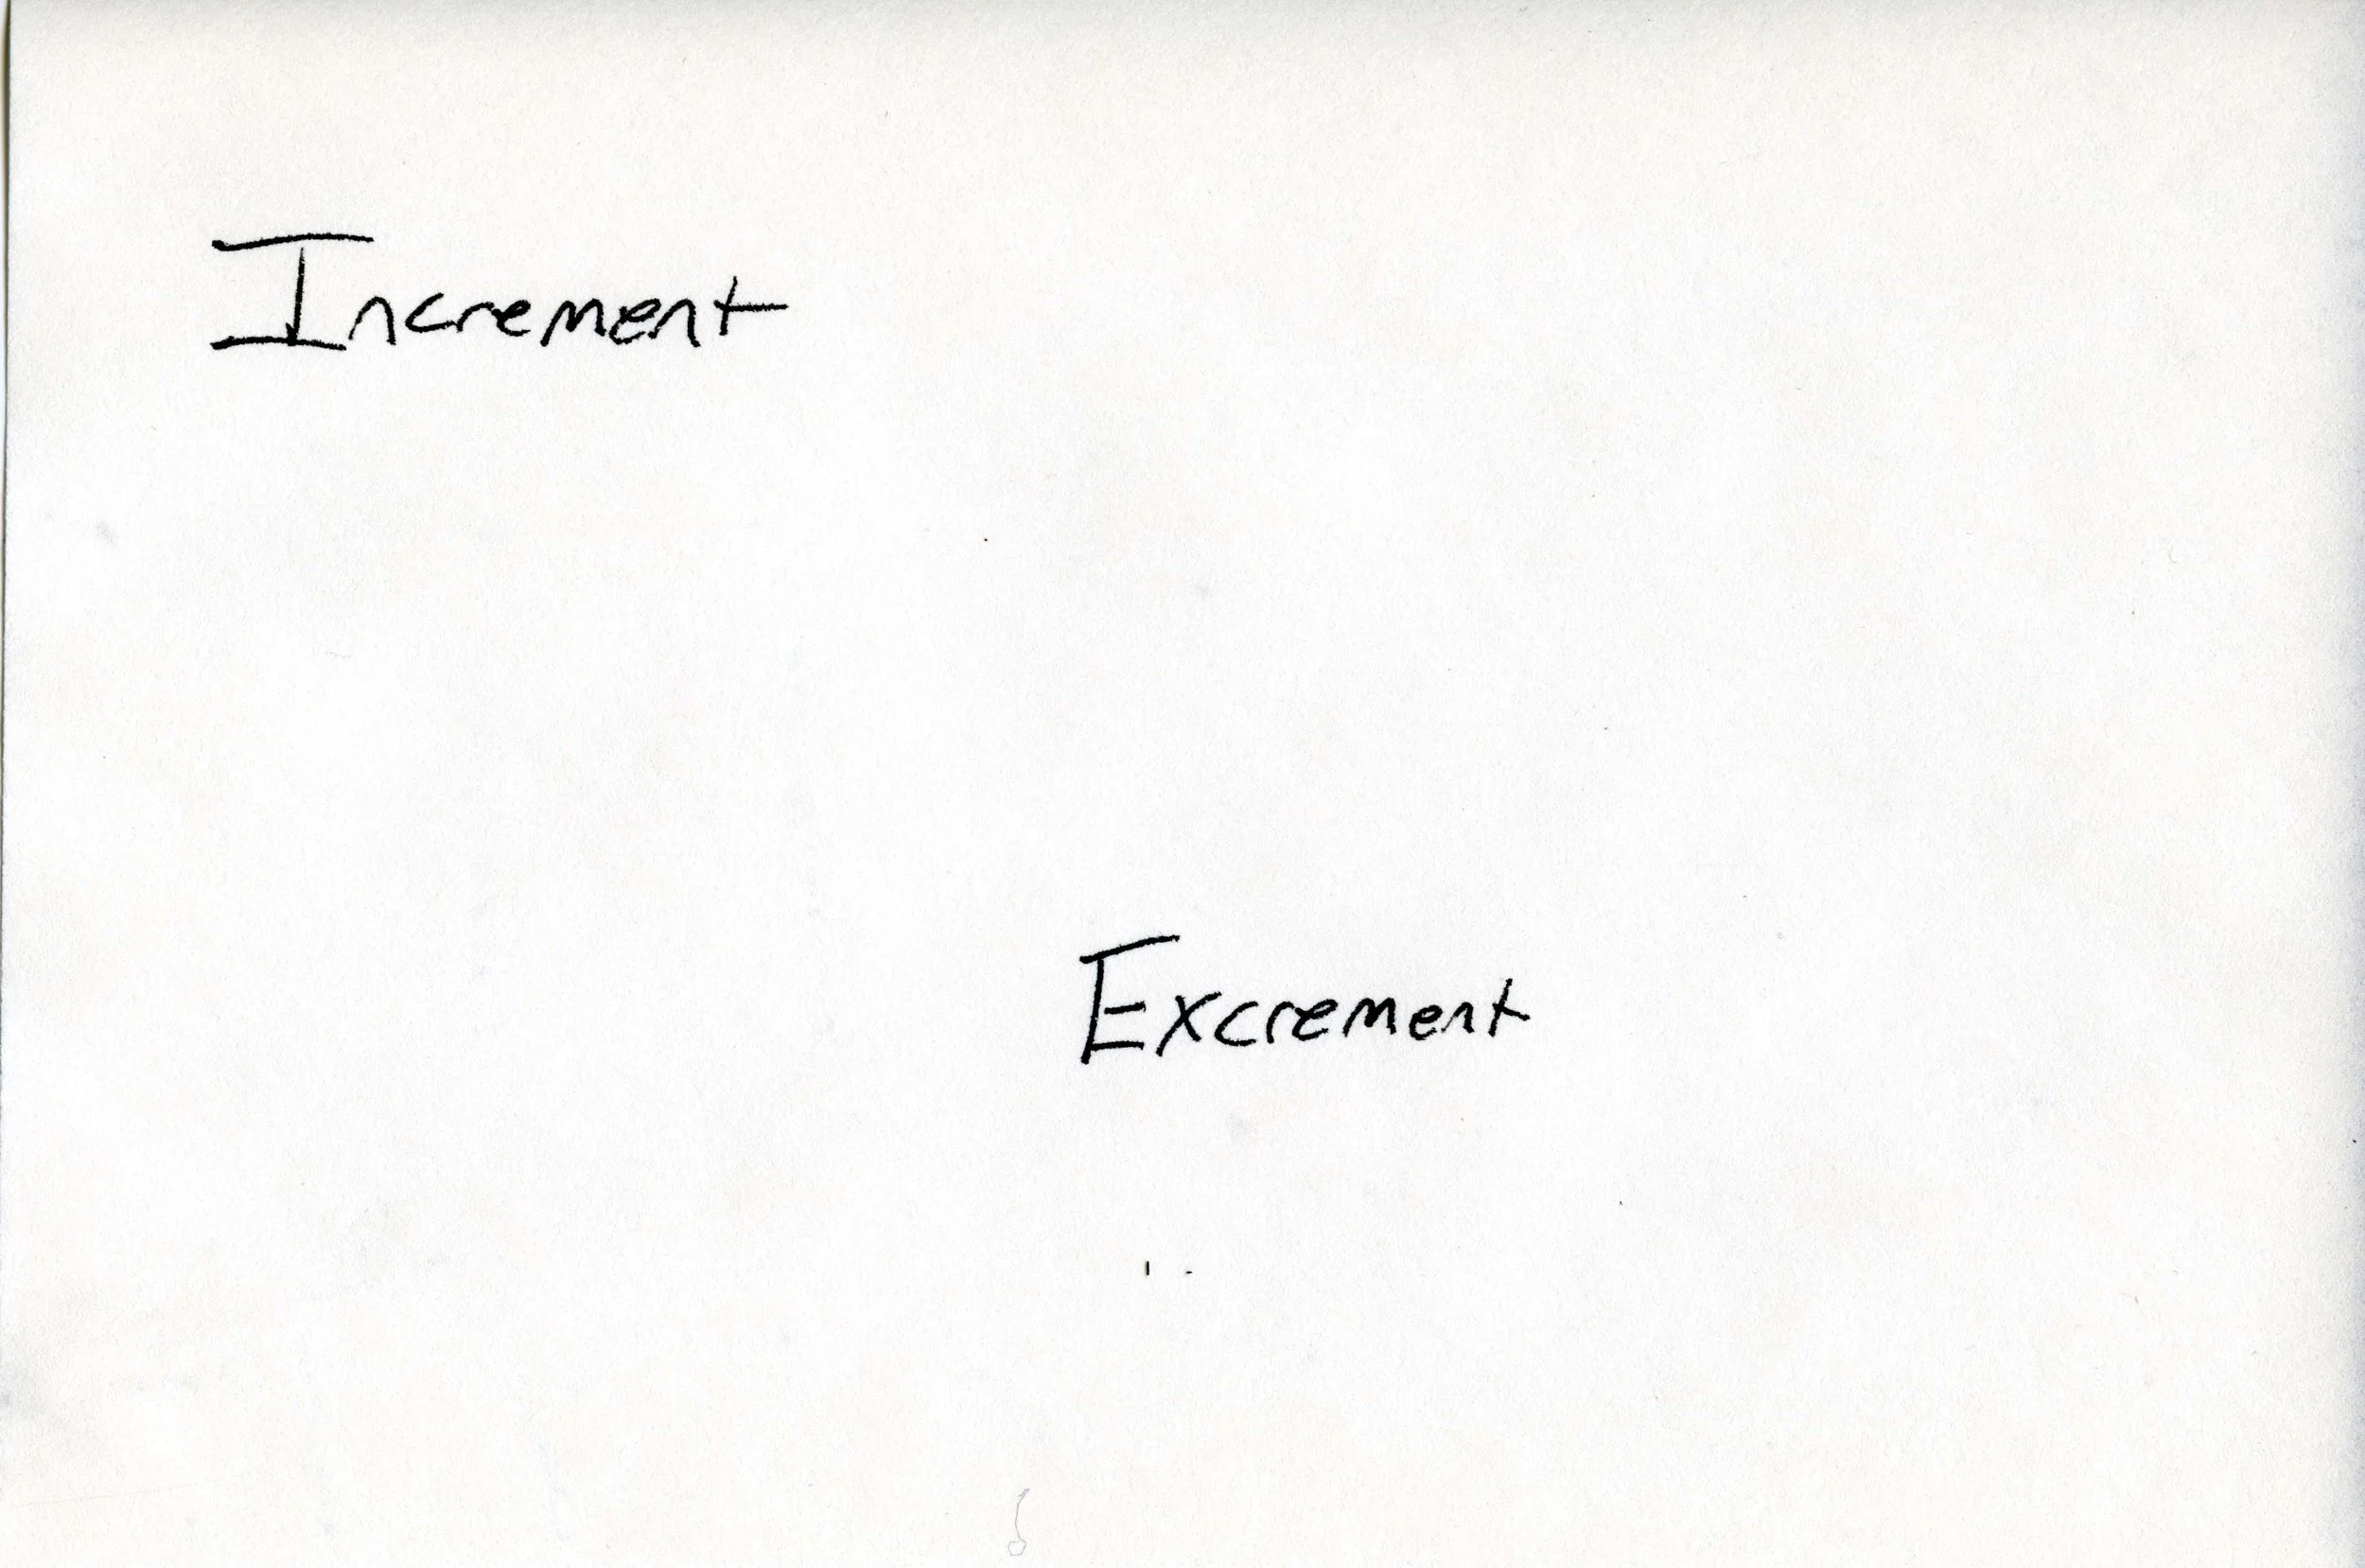 Increment
Excrement